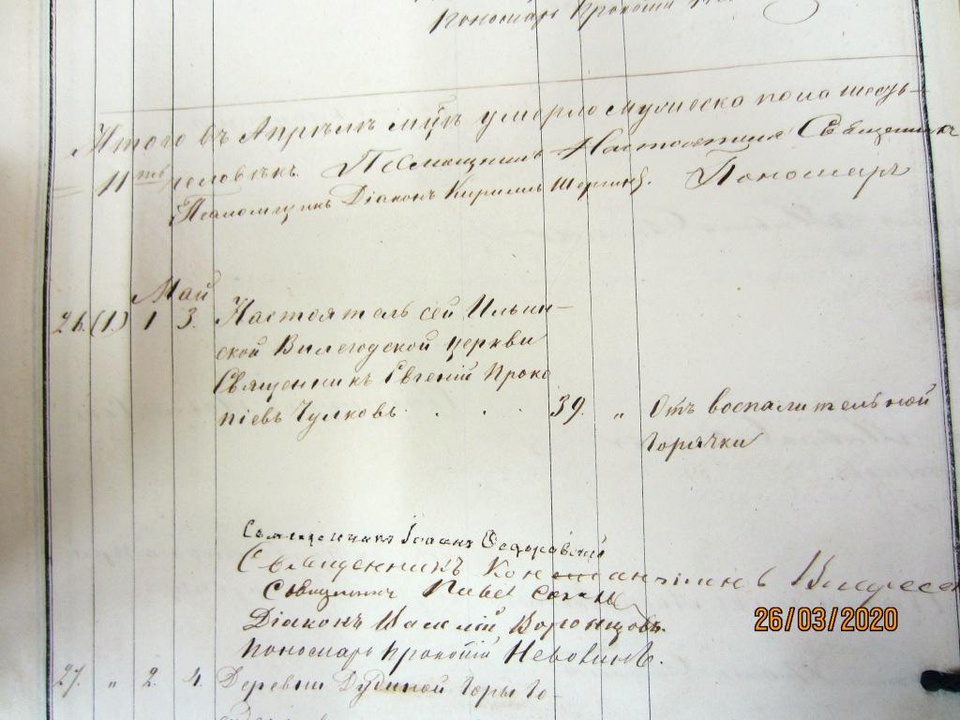 Пономарь Прокопій
Итого въ Апрѣлѣ м҃цѣ умерло мужеска пола шесть-
11ть человѣкъ. Настоятель Священникъ
Псаломщикъ Діаконъ Кириллъ Шергинъ. Пономарь
Май
26. (1.) 1 3. Настоятель сей Ильин-
ской Вилегодской церкви
Священникъ Евгеній Проко
піевъ Чулковъ . . . 39. „ Отъ воспалительной
горячки
Священникъ Іоаннъ
Священникъ Константинъ
Священникъ Павел
Діаконъ Василій Воронцовъ.
Пономарь Прокопій Невовинъ.
27. „ 2. 4. Деревни Дудиной Горы Го-
26/03/2020